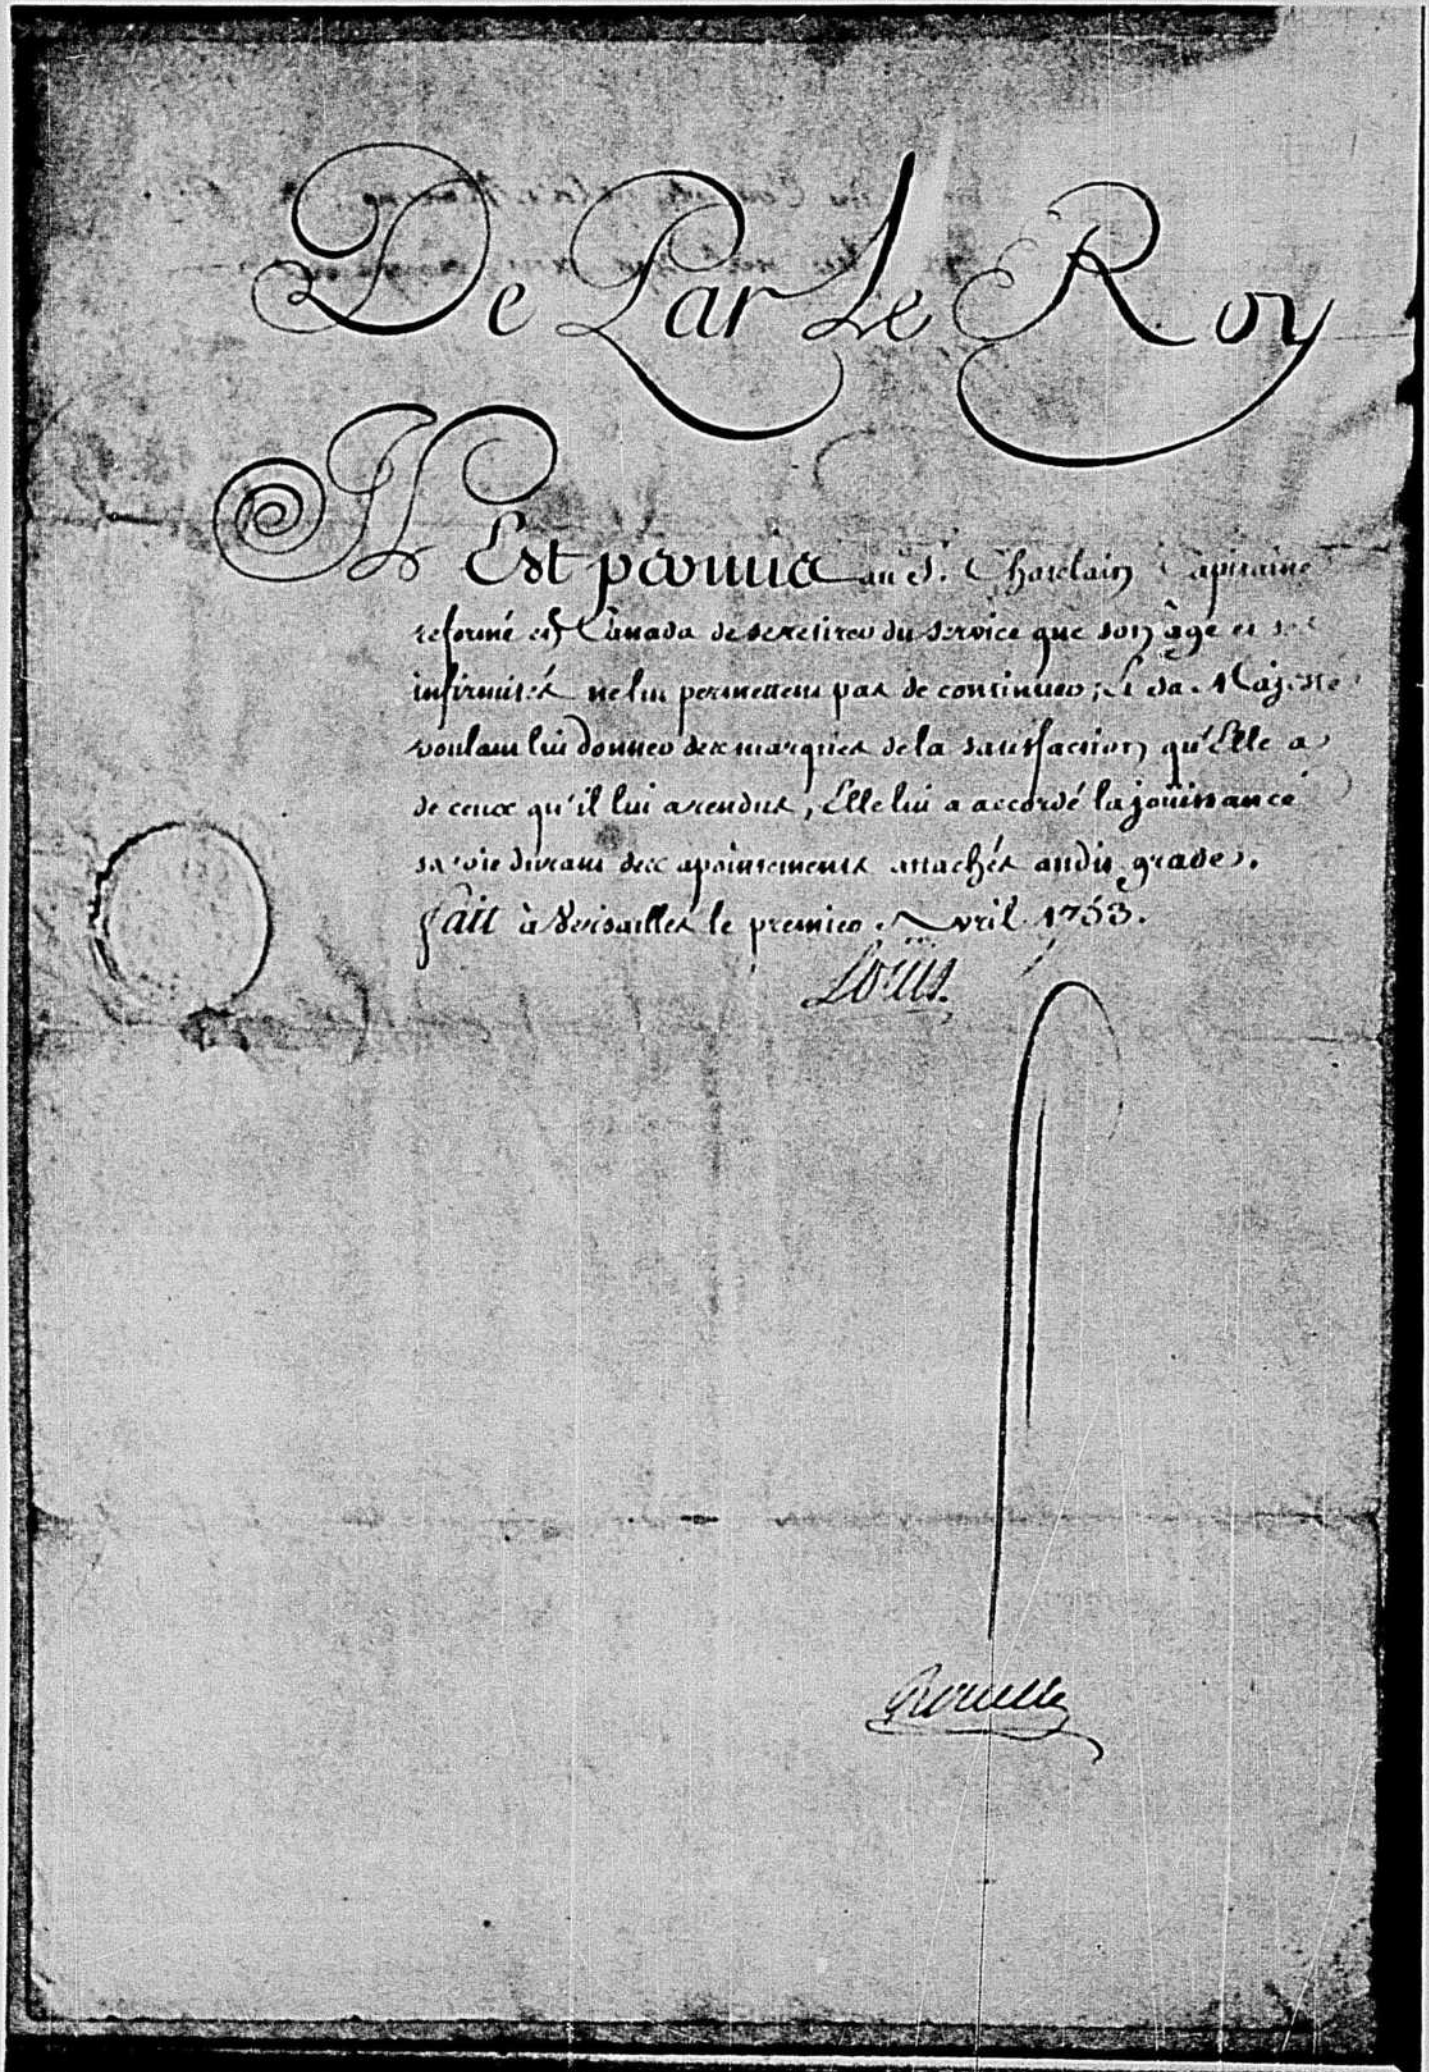 De Par Le Roy
Il Est permis au S. Chatelain Capitaine
reformé en Canada de se retirer du service que son âge et ses
infirmités ne lui permettent pas de continuer; Et sa Majesté
voulant lui donner des marques de la satisfaction qu'Elle a
de ceux qu'il lui a rendus, Elle lui a accordé la joüissance
sa vie durant des apointements attachés audit grade.
fait à Versailles le premier Avril 1753.
Loüis.
Rouillé